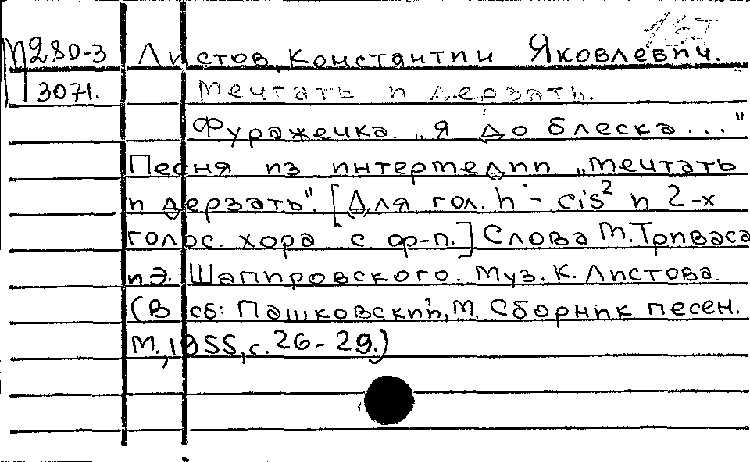 М280-3 Листов, Константин Яковлевич.
3071. Мечтать и дерзать.
Фуражечка „Я до блеска..."
Песня из интермедии „Мечтать
и дерзать". [Для гол. h - cis² и 2-х
голос. хора с ф-п.] Слова М. Триваса
и Э. Шапировского. Муз. К. Листова.
(В сб: Пашковский, М. Сборник песен.
М., 1955, с. 26-29.)